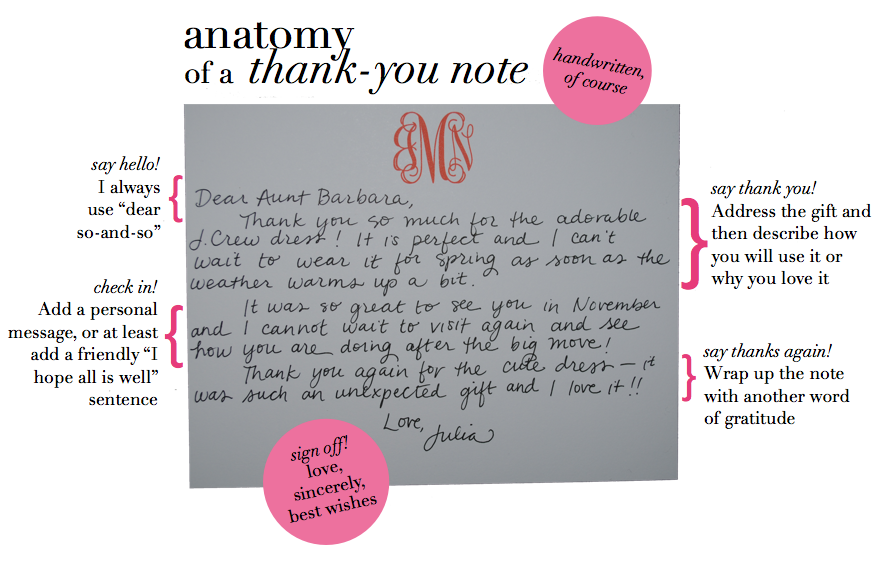 anatomy
of a thank-you note
handwritten,
of course
say hello!
I always
use “dear
so-and-so”
check in!
Add a personal
message, or at least
add a friendly “I
hope all is well”
sentence
Dear Aunt Barbara,
Thank you so much for the adorable
J.Crew dress! It is perfect and I can't
wait to wear it for spring as soon as the
weather warms up a bit.
It was so great to see you in November
and I cannot wait to visit again and see
how you are doing after the big move!
Thank you again for the cute dress – it
was such an unexpected gift and I love it!!
Love,
Julia
say thank you!
Address the gift and
then describe how
you will use it or
why you love it
say thanks again!
Wrap up the note
with another word
of gratitude
sign off!
love,
sincerely,
best wishes